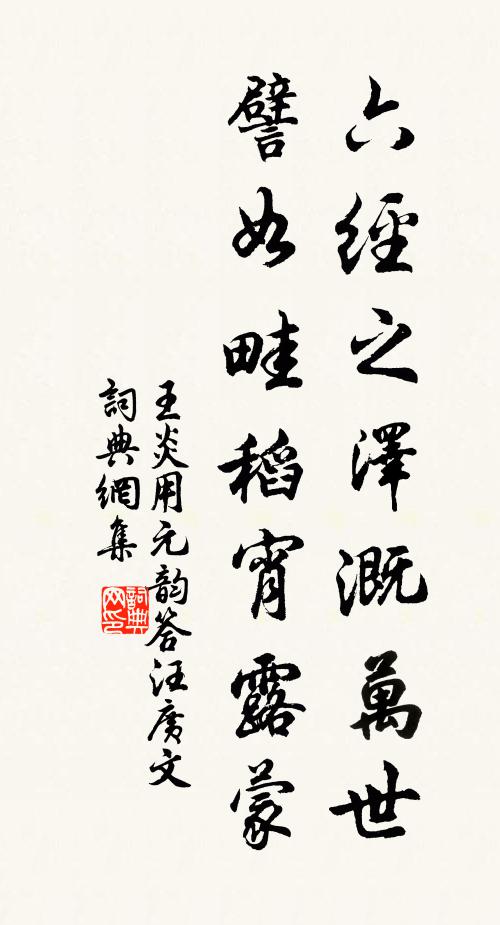 六經之澤溉萬世
譬如畦稻宵露蒙
王炎用元韵答汪廣文
詞典網集
詞典网印